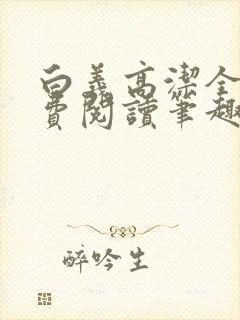 白義高潔全
費閱讀筆趣
醉吟生